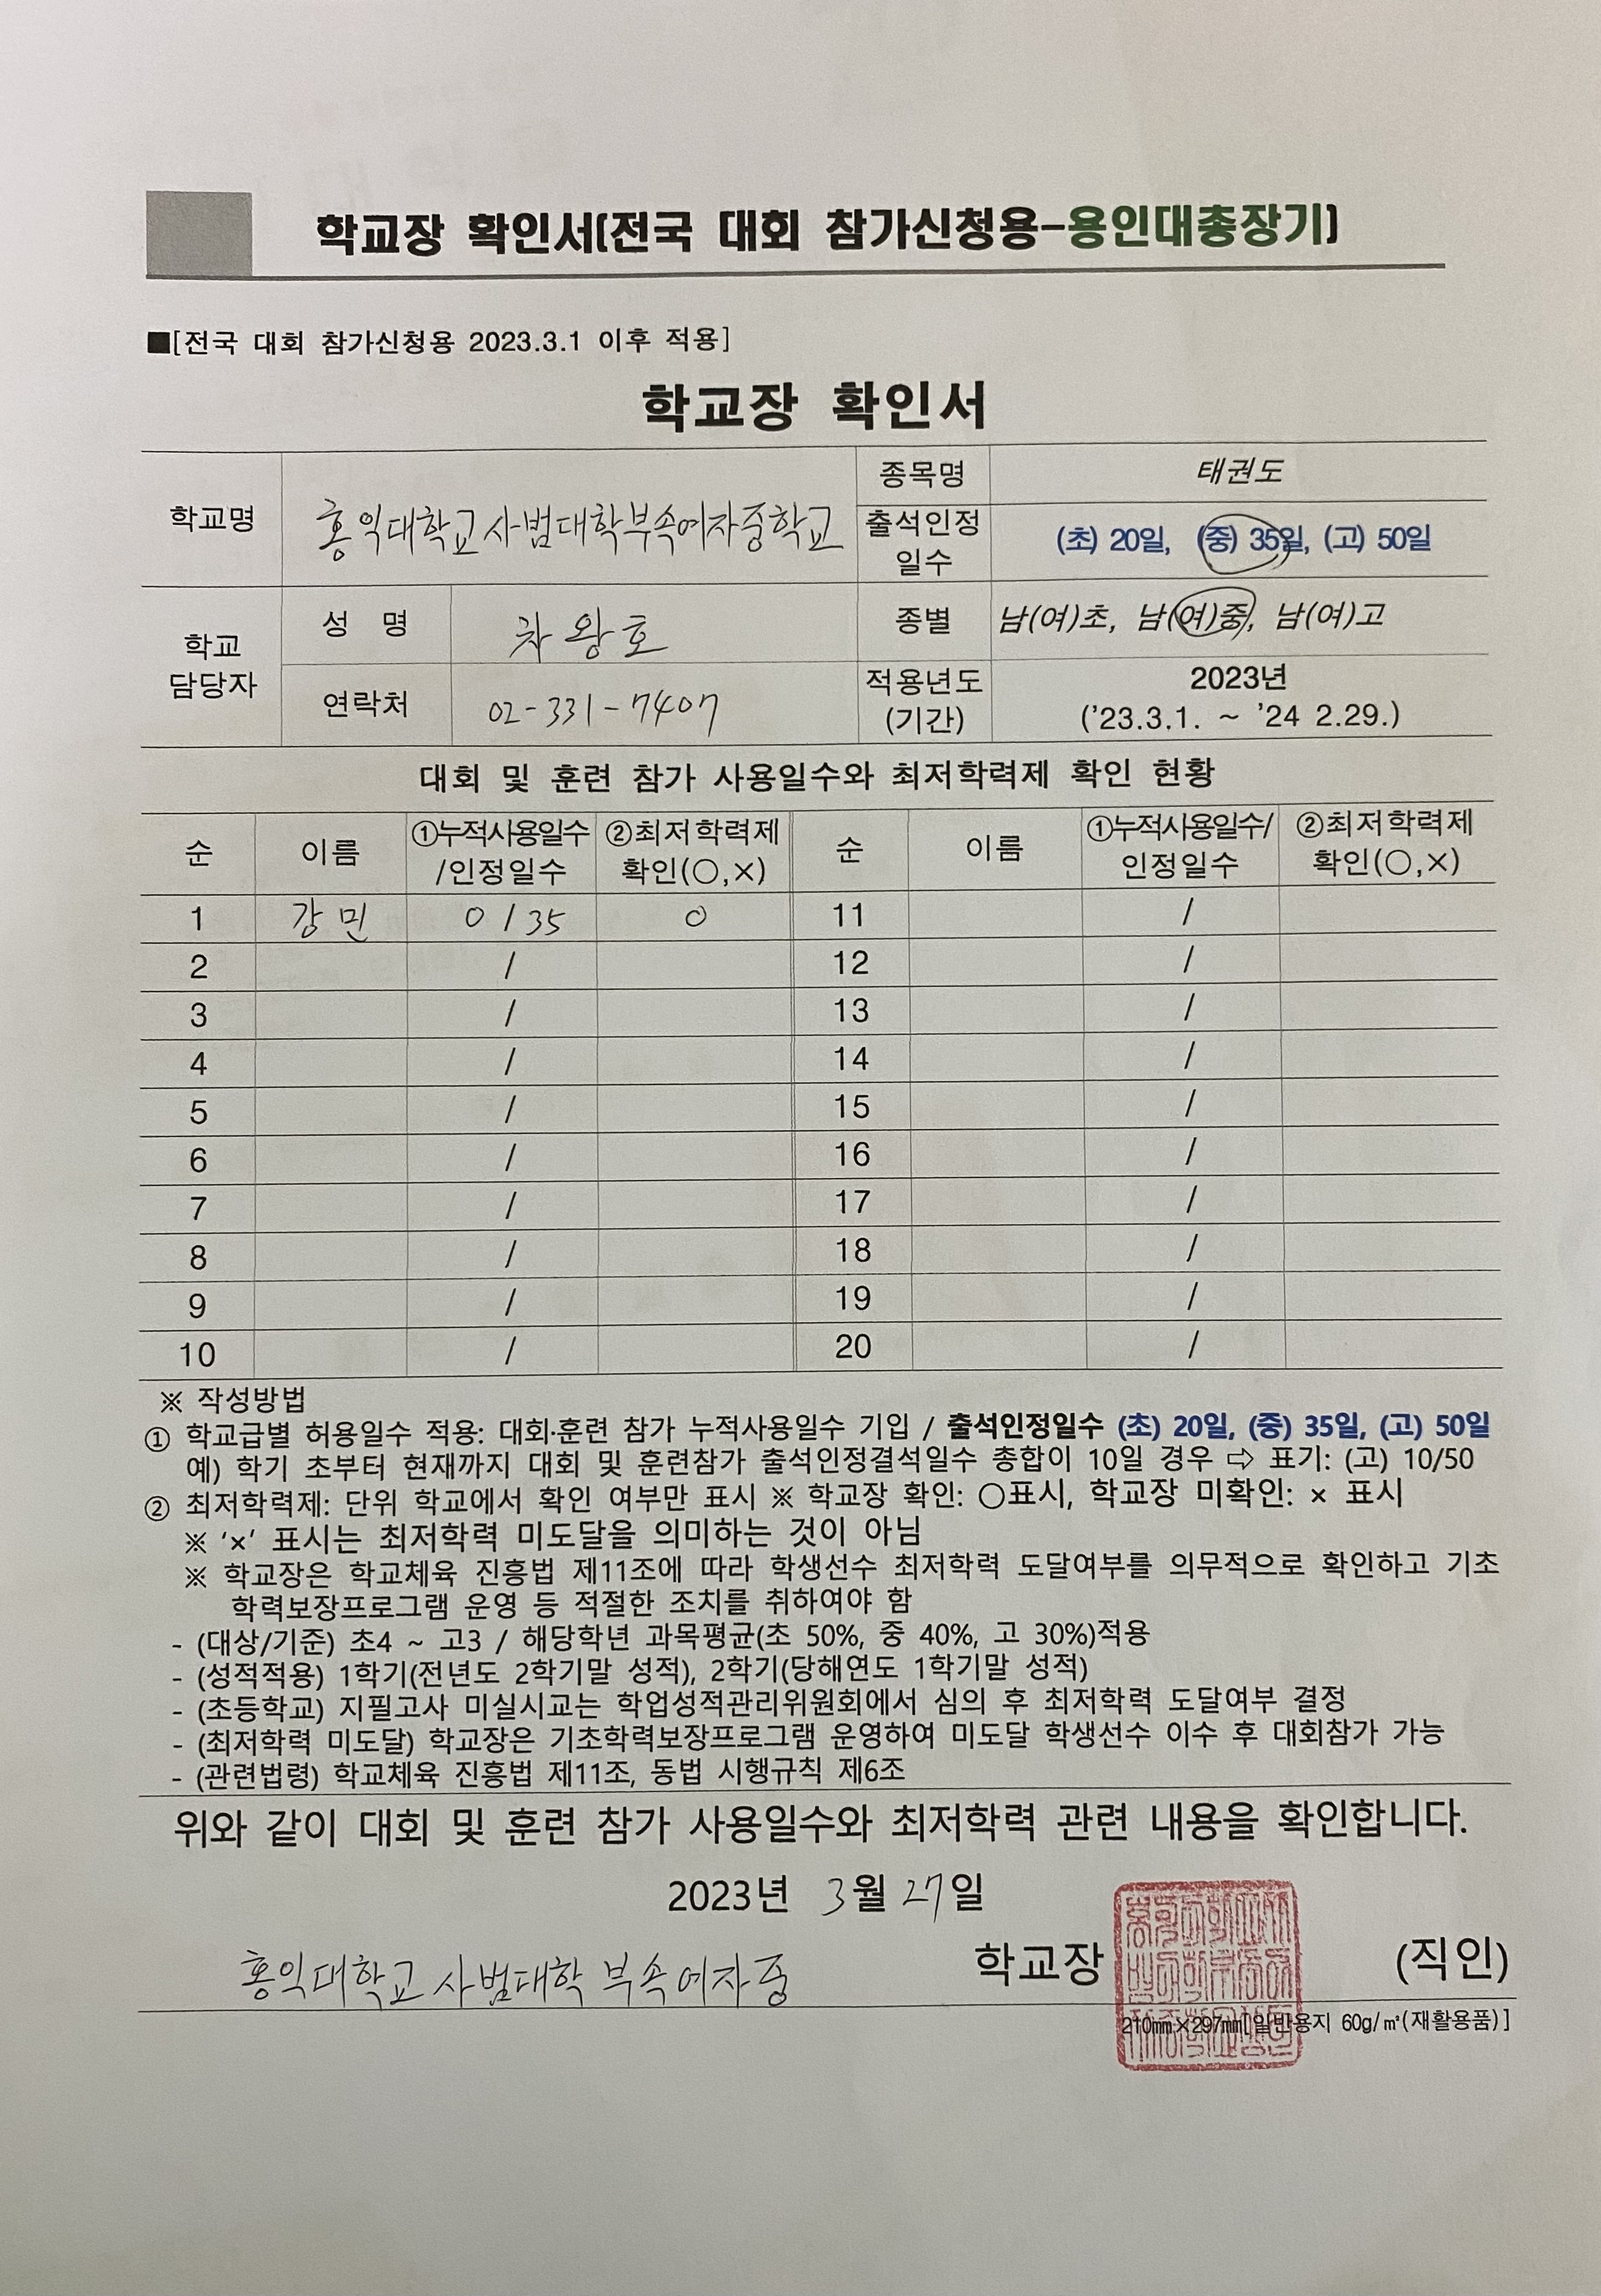 학교장 확인서(전국 대회 참가신청용-용인대총장기)
■[전국 대회 참가신청용 2023.3.1 이후 적용]
학교장 확인서
학교명 홍익대학교사범대학부속여자중학교 종목명 태권도
출석인정 일수 (초) 20일, (중) 35일, (고) 50일
학교 담당자 성 명 차왕호 종별 남(여)초, 남(여)중, 남(여)고
연락처 02-331-7407 적용년도 (기간) 2023년 ('23.3.1. ~ '24 2.29.)
대회 및 훈련 참가 사용일수와 최저학력제 확인 현황
순 이름 ①누적사용일수 /인정일수 ②최저학력제 확인(○,×) 순 이름 ①누적사용일수/ 인정일수 ②최저학력제 확인(○,×)
1 강민 0 / 35 ○ 11 /
2 / 12 /
3 / 13 /
4 / 14 /
5 / 15 /
6 / 16 /
7 / 17 /
8 / 18 /
9 / 19 /
10 / 20 /
※ 작성방법
① 학교급별 허용일수 적용: 대회·훈련 참가 누적사용일수 기입 / 출석인정일수 (초) 20일, (중) 35일, (고) 50일
예) 학기 초부터 현재까지 대회 및 훈련참가 출석인정결석일수 총합이 10일 경우 ⇨ 표기: (고) 10/50
② 최저학력제: 단위 학교에서 확인 여부만 표시 ※ 학교장 확인: ○표시, 학교장 미확인: × 표시
※ '×' 표시는 최저학력 미도달을 의미하는 것이 아님
※ 학교장은 학교체육 진흥법 제11조에 따라 학생선수 최저학력 도달여부를 의무적으로 확인하고 기초
학력보장프로그램 운영 등 적절한 조치를 취하여야 함
- (대상/기준) 초4 ~ 고3 / 해당학년 과목평균(초 50%, 중 40%, 고 30%)적용
- (성적적용) 1학기(전년도 2학기말 성적), 2학기(당해연도 1학기말 성적)
- (초등학교) 지필고사 미실시교는 학업성적관리위원회에서 심의 후 최저학력 도달여부 결정
- (최저학력 미도달) 학교장은 기초학력보장프로그램 운영하여 미도달 학생선수 이수 후 대회참가 가능
- (관련법령) 학교체육 진흥법 제11조, 동법 시행규칙 제6조
위와 같이 대회 및 훈련 참가 사용일수와 최저학력 관련 내용을 확인합니다.
2023년 3월 27일
홍익대학교 사범대학 부속여자중 학교장 (직인)
210㎜×297㎜[일반용지 60g/㎡(재활용품)]